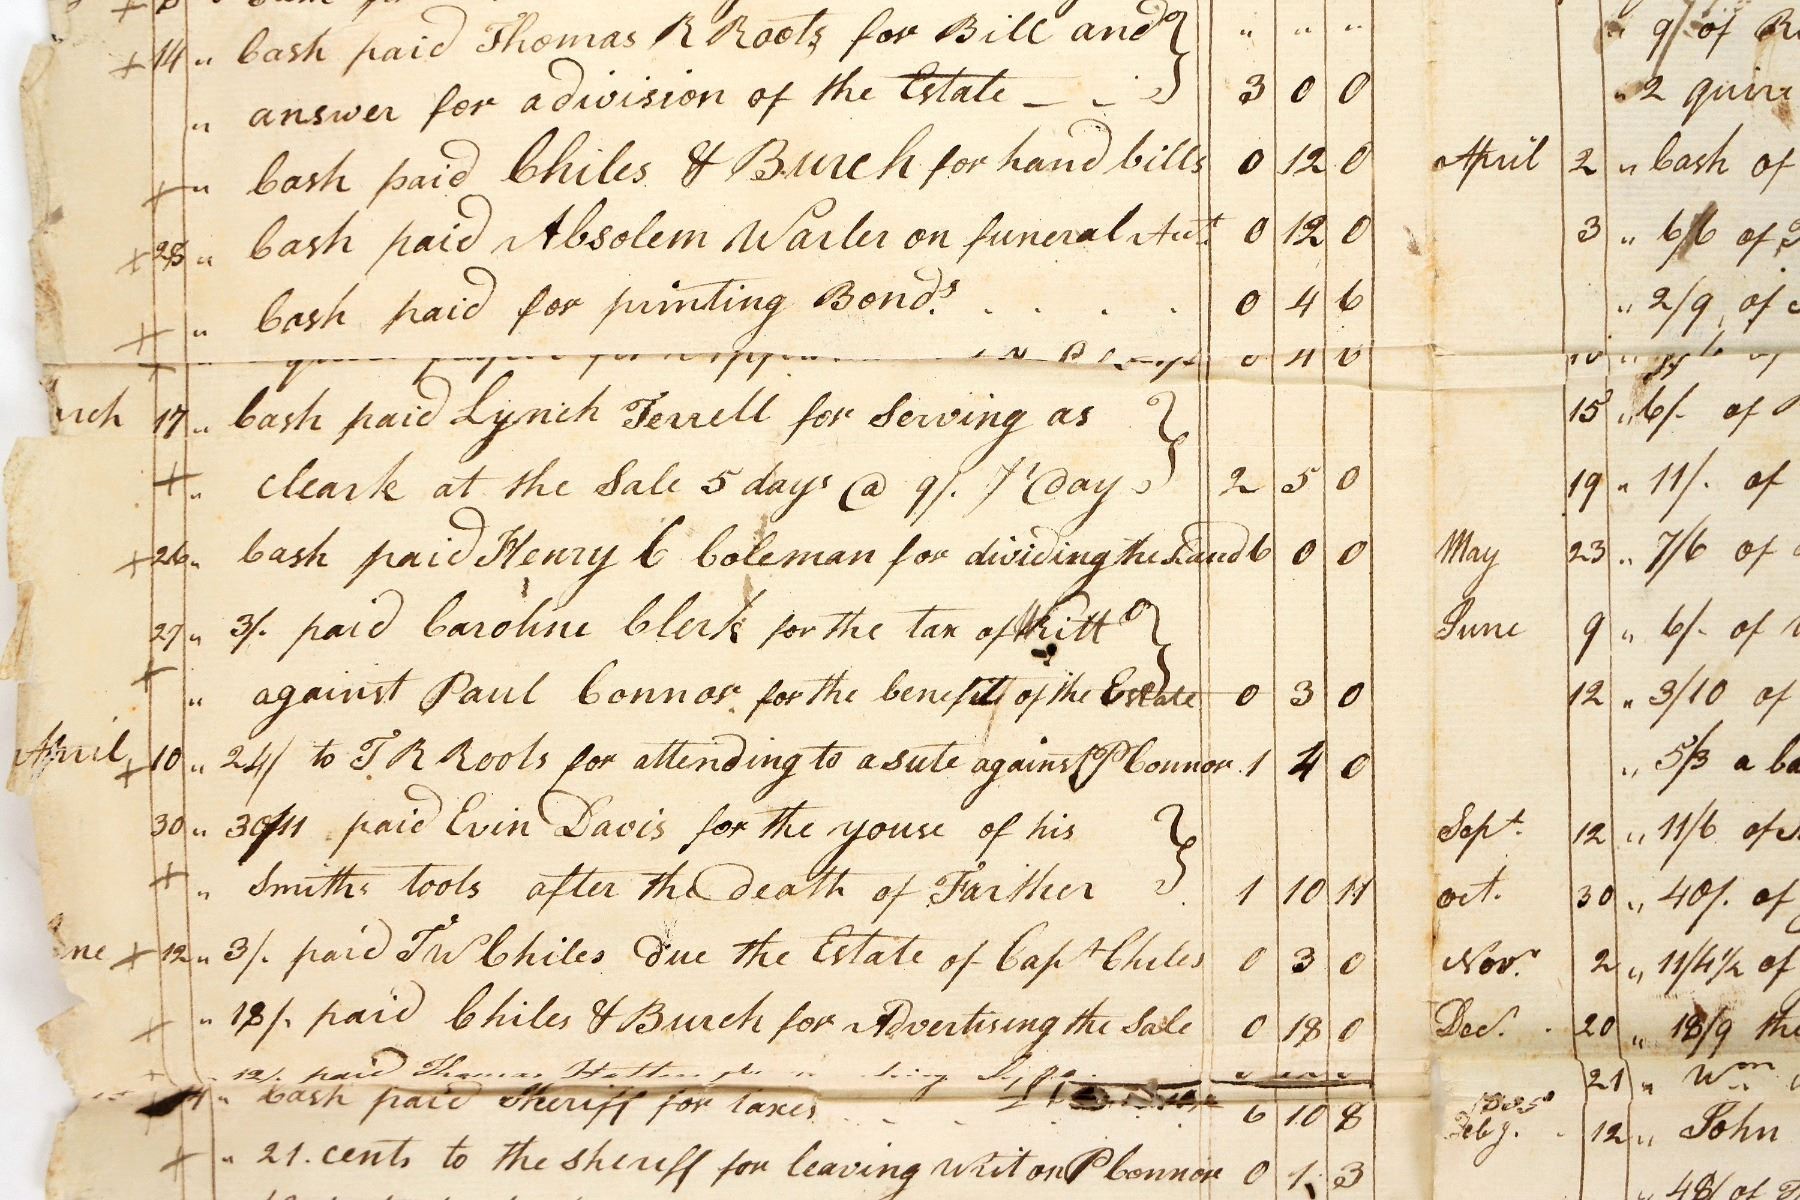 14 " Cash paid Thomas R Roots for Bill and } " " "
" answer for a division of the Estate 3 0 0
" Cash paid Chiles & Burch for hand bills 0 12 0
28 " Cash paid Absolem Warler on funeral Act 0 12 0
" Cash paid for printing Bonds 0 4 6
17 " Cash paid Lynch Terrell for Serving as
" cleark at the Sale 5 days @ 9/. Day 2 5 0
26 " Cash paid Henry C Coleman for dividing the Land 6 0 0
27 " 3/. paid Caroline Clerk for the tax of Ritt
" against Paul Connor for the benefit of the Estate 0 3 0
April 10 " 24/ to T R Roots for attending to a sute against P Connor 1 4 0
30 " 30/11 paid Evin Davis for the youse of his
" Smiths tools after the death of Farther 1 10 11
12 " 3/. paid T W Chiles due the Estate of Capt Chiles 0 3 0
" 18/. paid Chiles & Burch for Advertising the Sale 0 18 0
" 12/. paid Thomas
" Cash paid Sheriff for taxes 6 10 8
" 21 cents to the sheriff for leaving writ on P Connor 0 1 3
" 9/ of
" 2 quire
April 2 " Cash of
3 " 6/6 of
" 2/9 of
15 " 6/- of
19 " 11/. of
May 23 " 7/6 of
June 9 " 6/- of
12 " 3/10 of
" 5/3 a
Sept. 12 " 11/6 of
oct. 30 " 40/. of
Nov. 2 " 11/4½ of
Dec. 20 " 18/9 the
21 " Wm
Feby. 12 " John
" 48/ of